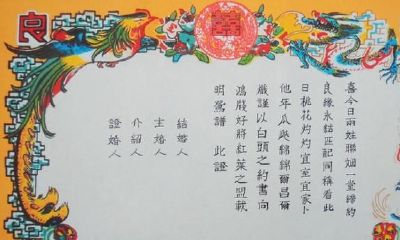 囍
良
喜今日兩姓聯姻一堂締約
良緣永結匹配同稱看此
日桃花灼灼宜室宜家卜
他年瓜瓞綿綿爾昌爾
熾謹以白頭之約書向
鴻牋好將紅葉之盟載
明鴛譜 此證
結婚人
主婚人
介紹人
證婚人